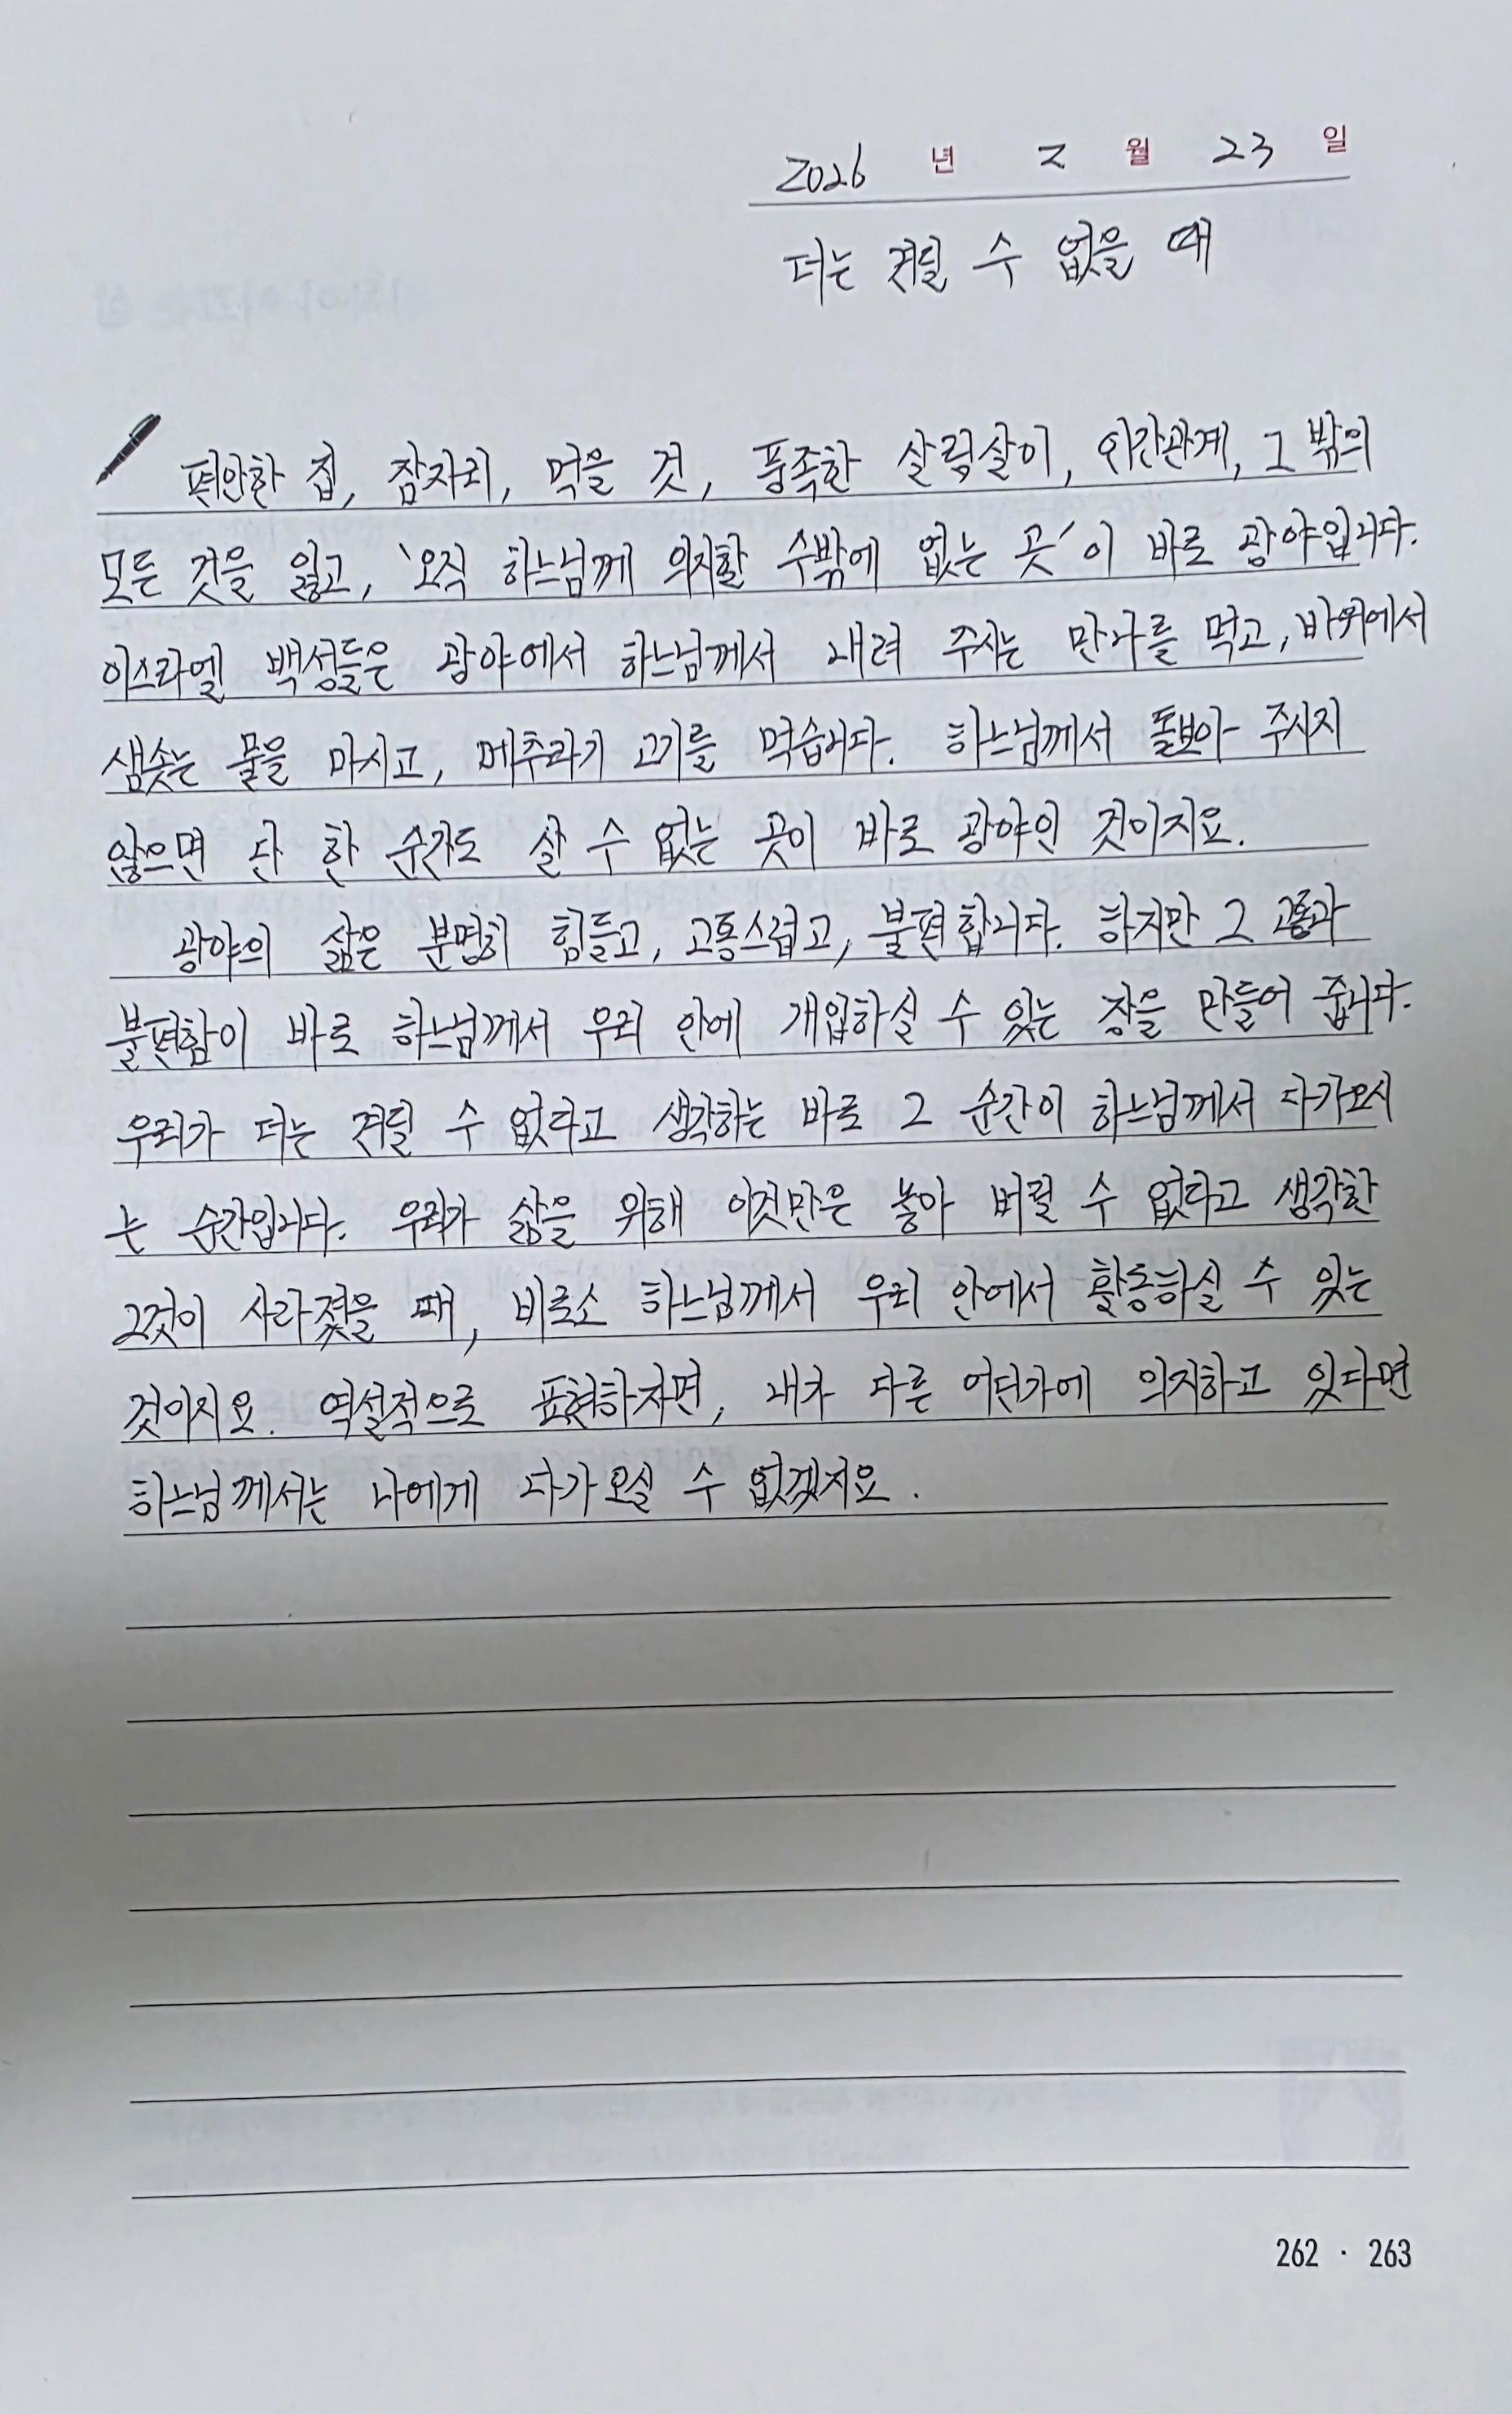 2026 년 2 월 23 일
더는 견딜 수 없을 때
편안한 집, 잠자리, 먹을 것, 풍족한 살림살이, 인간관계, 그 밖의
모든 것을 잃고, '오직 하느님께 의지할 수밖에 없는 곳'이 바로 광야입니다.
이스라엘 백성들은 광야에서 하느님께서 내려 주시는 만나를 먹고, 바위에서
샘솟는 물을 마시고, 메추라기 고기를 먹습니다. 하느님께서 돌보아 주시지
않으면 단 한 순간도 살 수 없는 곳이 바로 광야인 것이지요.
광야의 삶은 분명히 힘들고, 고통스럽고, 불편합니다. 하지만 그 고통과
불편함이 바로 하느님께서 우리 안에 개입하실 수 있는 장을 만들어 줍니다.
우리가 더는 견딜 수 없다고 생각하는 바로 그 순간이 하느님께서 다가오시
는 순간입니다. 우리가 삶을 위해 이것만은 놓아 버릴 수 없다고 생각한
그것이 사라졌을 때, 비로소 하느님께서 우리 안에서 활동하실 수 있는
것이지요. 역설적으로 표현하자면, 내가 다른 어딘가에 의지하고 있다면
하느님께서는 나에게 다가오실 수 없겠지요.
262 · 263